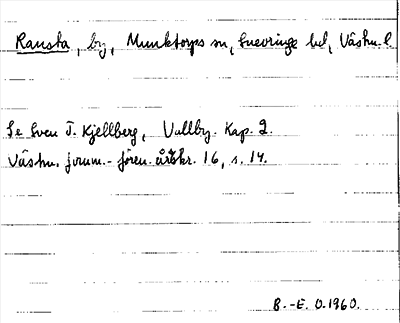 Ransta, by, Munktorps sn, Snevringe hd, Västm. l.
Se Sven T. Kjellberg, Vallby. Kap. 2.
Västm. fornm.-fören. årsskr. 16, s. 14.
B.-E. O. 1960.